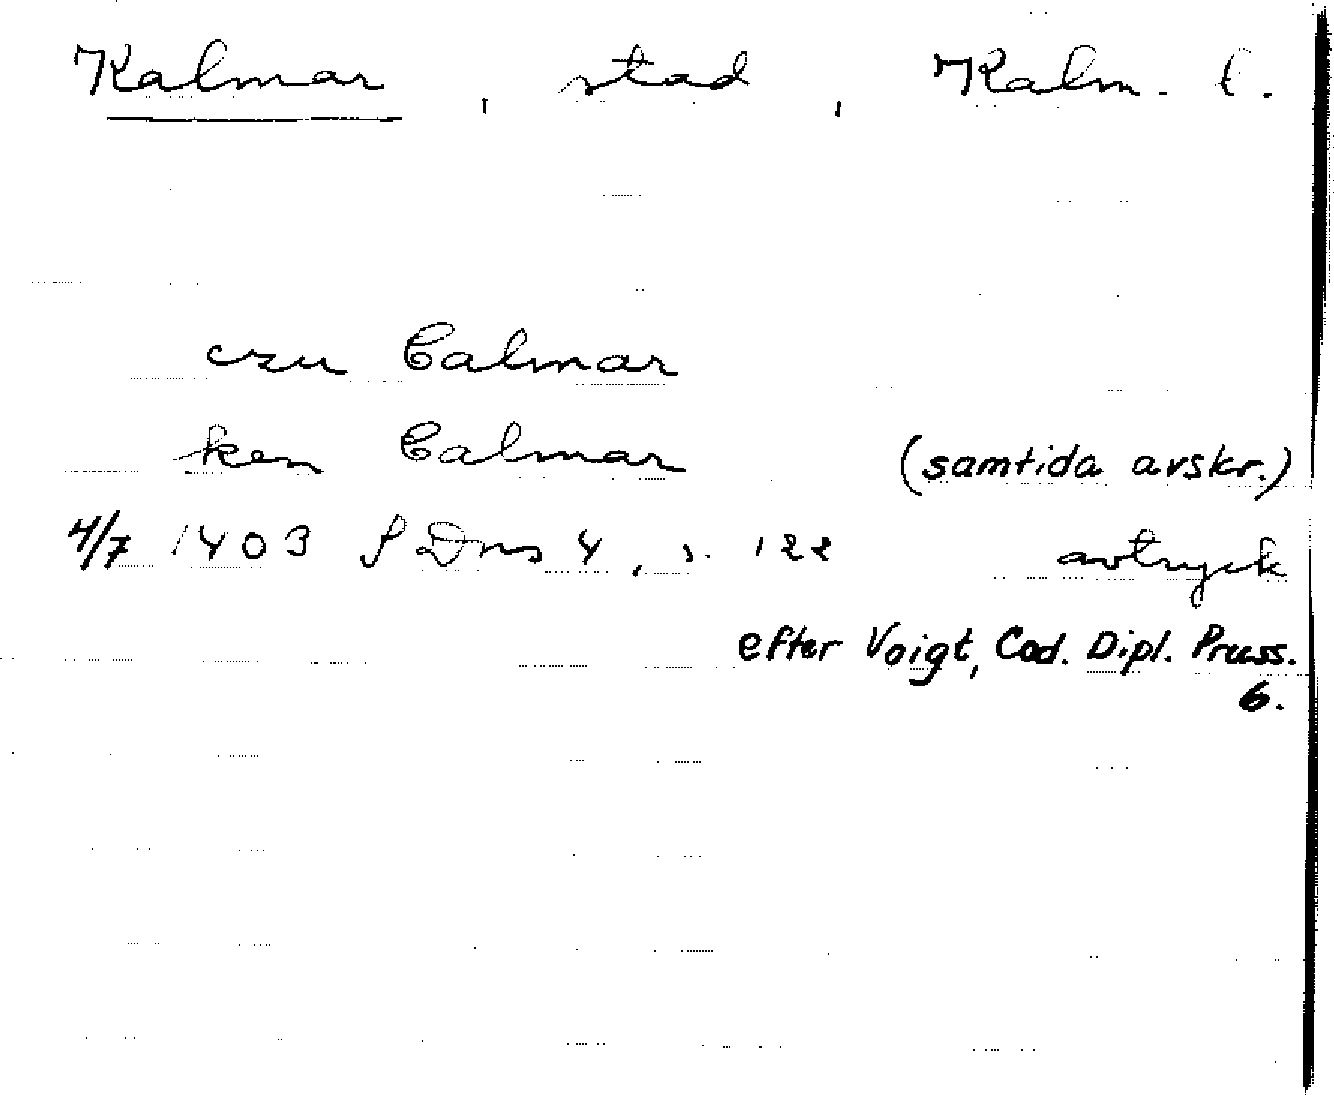 Kalmar, stad, Kalm. l.
czu Calmar
ken Calmar (samtida avskr.)
4/7 1403 SDns 4, s. 122 avtryck
efter Voigt, Cod. Dipl. Pruss.
6.